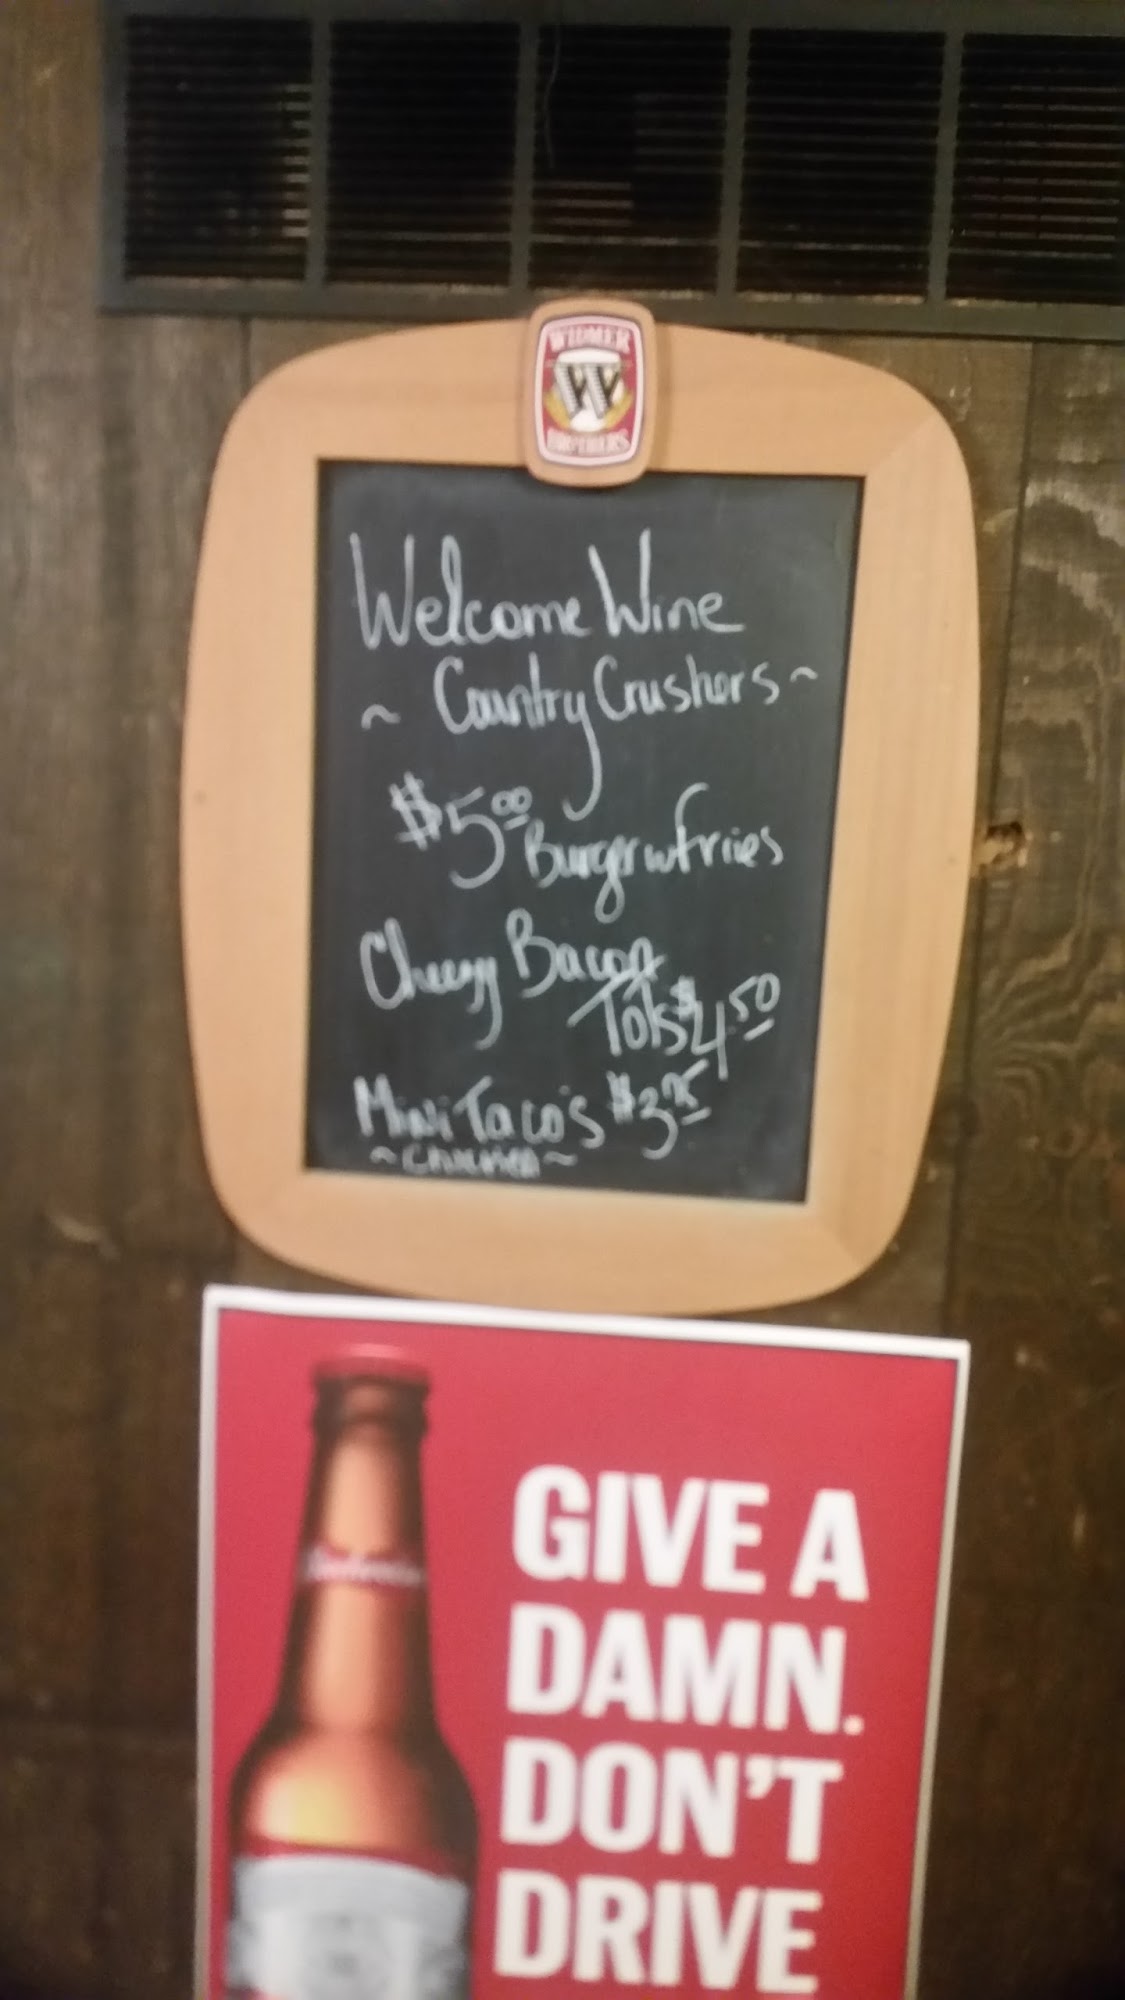 WIDMER
W
BROTHERS
Welcome Wine
~ Country Crushers ~
$5.00 Burger w Fries
Cheesy Bacon
Tots $4.50
Mini Taco's $3.75
~ chicken ~
Budweiser
GIVE A
DAMN.
DON'T
DRIVE